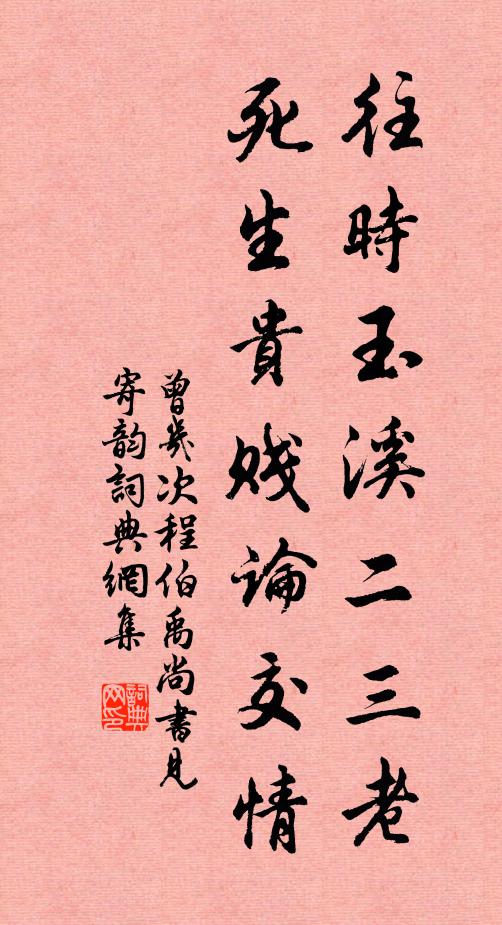 往時玉溪二三老
死生貴賤論交情
曾幾次程伯禹尚書見
寄韵詞典網集
詞典網印